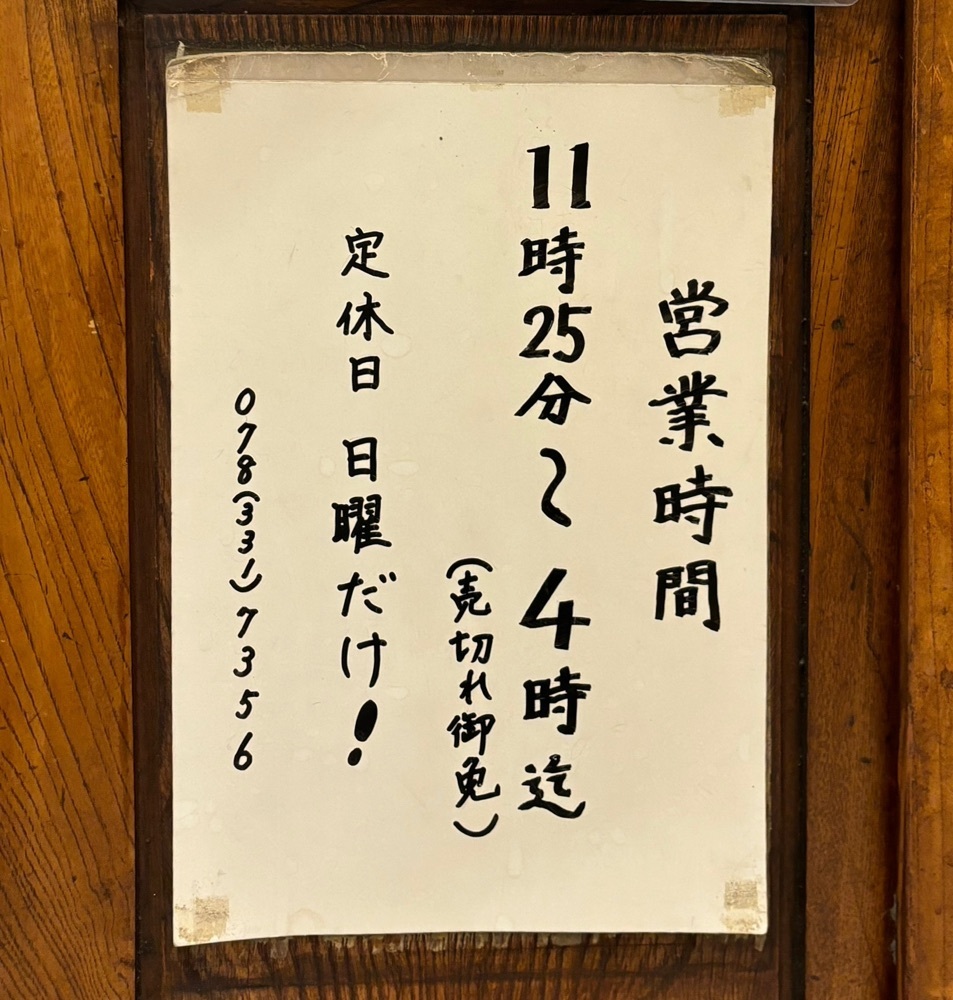 営業時間
11時25分～4時迄
(売切れ御免)
定休日 日曜だけ!
078(331)7356